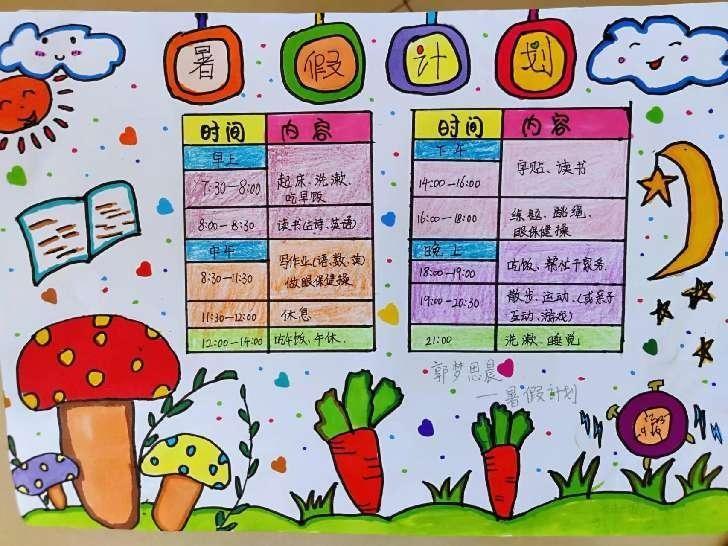 暑假计划
时间 内容
早上
7:30—8:00 起床、洗漱、
吃早饭
8:00—8:30 读书(古诗、英语)
中午
8:30—11:30 写作业(语、数、英)
做眼保健操
11:30—12:00 休息
12:00—14:00 吃午饭、午休.
时间 内容
下午
14:00—16:00 字贴、读书
16:00—18:00 练 跳绳、
眼保健操
晚上
18:00—19:00 吃饭、帮 干家务.
19:00—20:30 散步、运动、(或亲子
互动、游戏)
21:00 洗漱、睡觉
郭梦思晨
—暑假计划